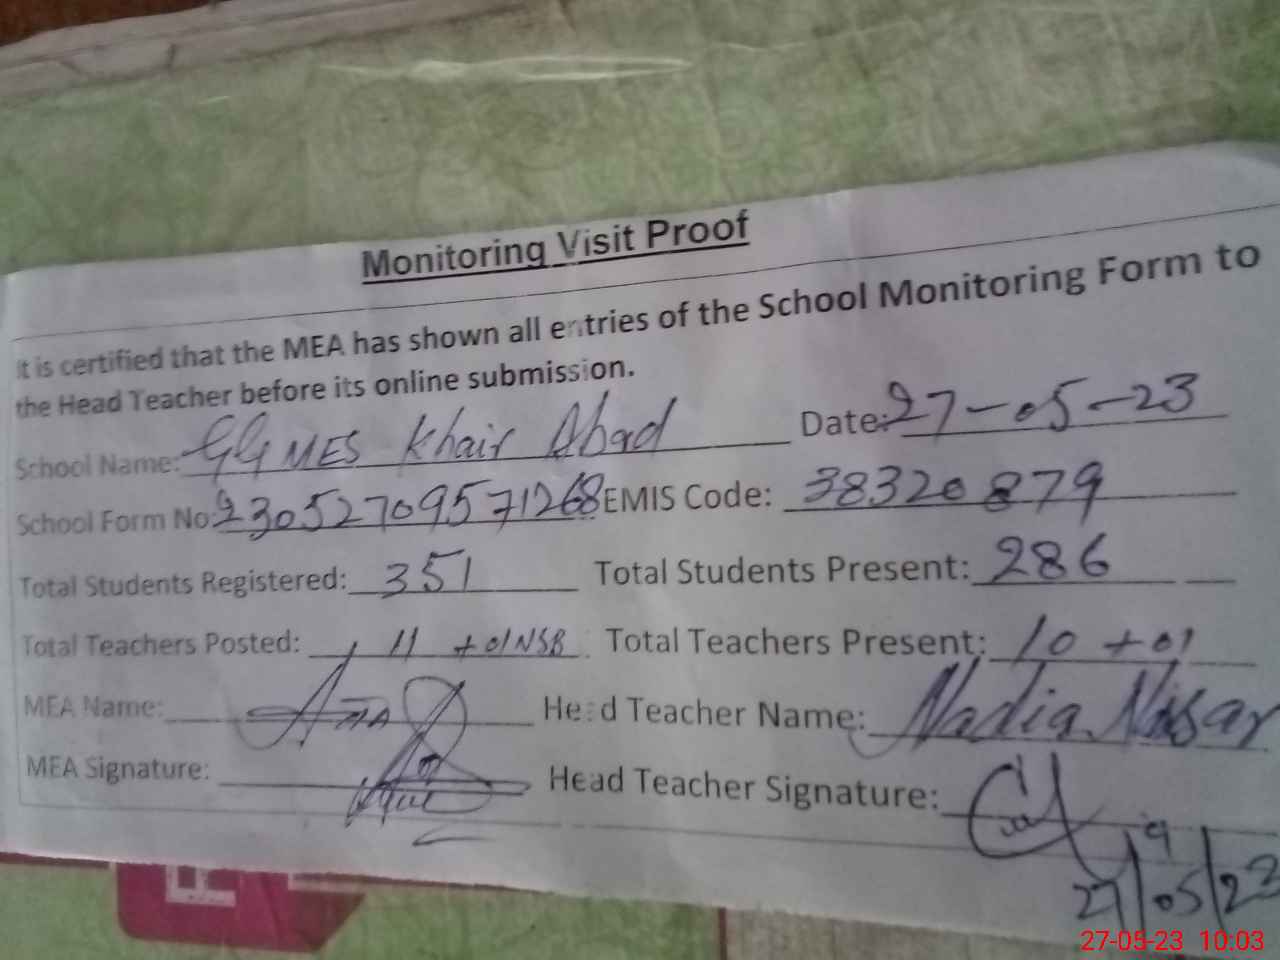 Monitoring Visit Proof
It is certified that the MEA has shown all entries of the School Monitoring Form to
the Head Teacher before its online submission.
School Name: GGMES Khair Abad Date: 27-05-23
School Form No: 23052709571268 EMIS Code: 38320879
Total Students Registered: 351 Total Students Present: 286
Total Teachers Posted: 11 +01NSB Total Teachers Present: 10 +01
MEA Name: Head Teacher Name: Nadia Nisar
MEA Signature: Head Teacher Signature:
27/05/23
27-05-23 10:03